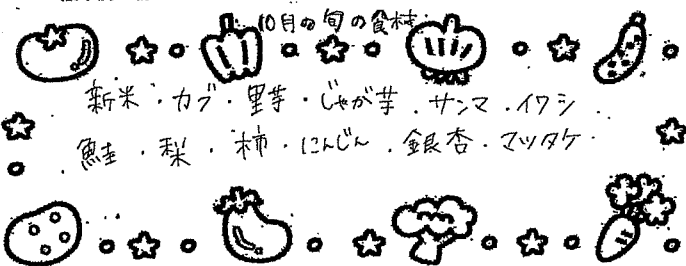 10月の旬の食材
新米・カブ・里芋・じゃが芋・サンマ・イワシ
鮭・梨・柿・にんじん・銀杏・マツタケ